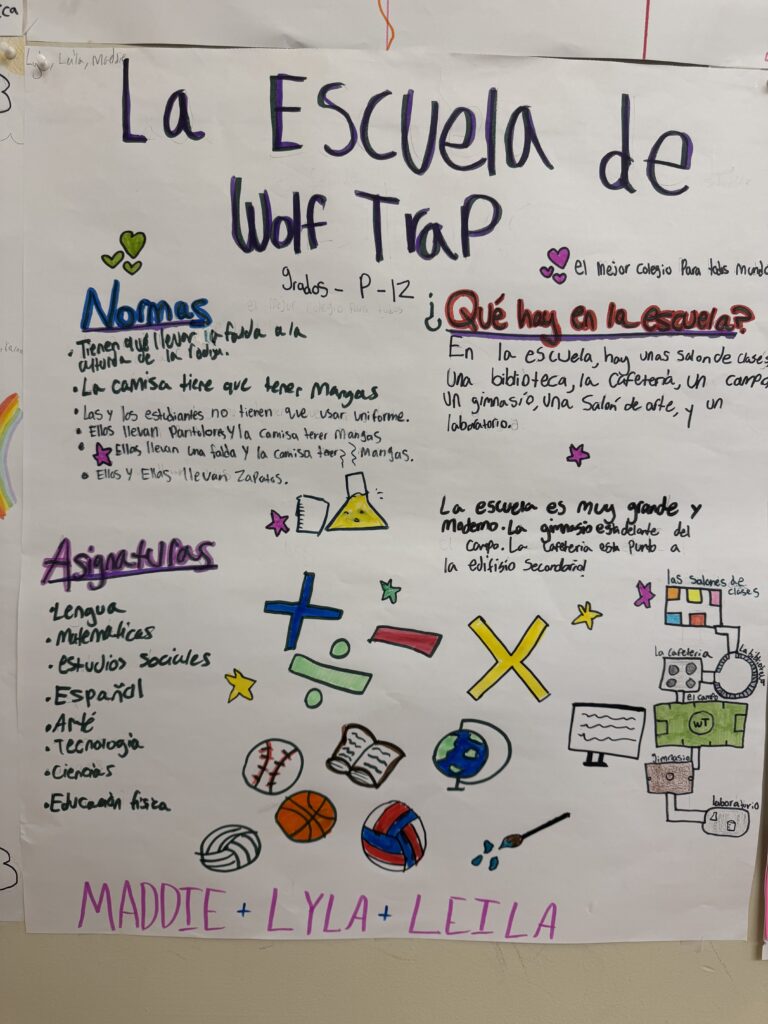 Lyla, Leila, Maddie
La Escuela de
Wolf Trap
grados - P-12
el mejor colegio Para todos mundo
Normas
• Tienen que llevar la falda a la
altura de la
• La camisa tiene que tener Mangas
• Las y los estudiantes no tienen que usar uniforme.
• Ellos llevan Pantalones y la camisa tener Mangas
• Ellas llevan una falda y la camisa tener Mangas.
• Ellos y Ellas llevan Zapatos.
¿Qué hay en la escuela?
En la escuela, hay unas salon de clases
una biblioteca, la cafetería, un campo
un gimnasio, una Salón de arte, y un
laboratorio.
La escuela es muy grande y
Moderno. La gimnasio esta delante del
campo. La cafeteria esta Punto a
la edifisio Secondario!
Asignaturas
• Lengua
• Matemáticas
• estudios sociales
• Español
• Arte
• Tecnología
• Ciencias
• Educación física
las salones de
clases
la cafeteria
la biblioteca
el campo
WT
gimnasio
laboratorio
MADDIE + LYLA + LEILA